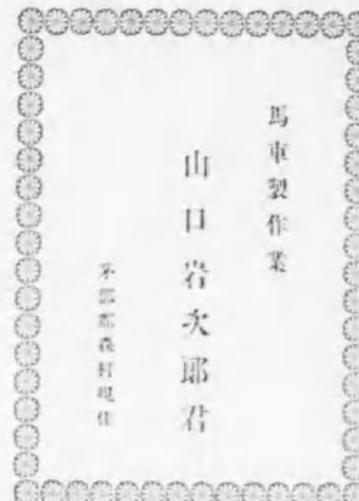 馬車製作業
山口岩次郎君
茅部郡森村現住